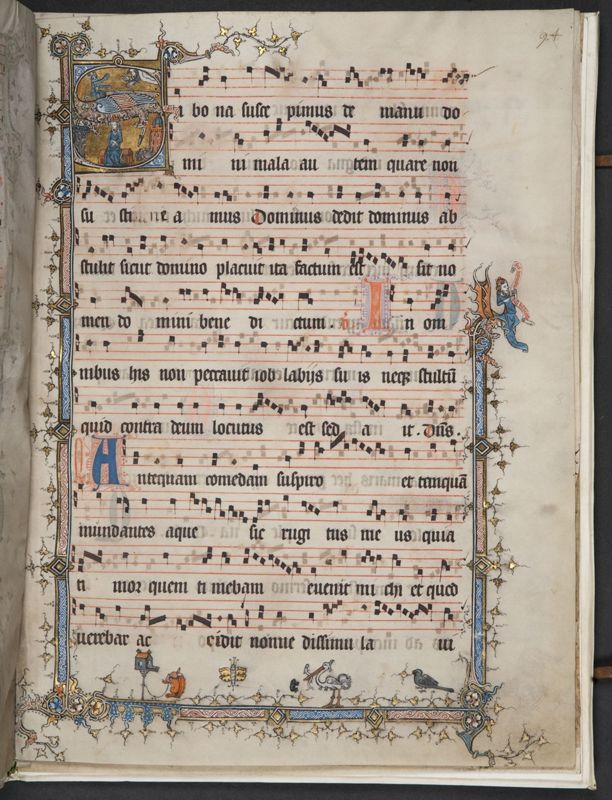 94
Si bo na susce pimus de manu do
mi ni mala au tem quare non
su stine a mus Dominus dedit dominus ab
stulit sicut domino placuit ita factum est sit no
men do mini bene di ctum. In om
nibus his non peccauit iob labijs su is neqz stultū
quid contra deum locutus est sed a it. Dūs.
Antequam comedam suspiro et tanquā
inundantes aque sic rugi tus me us quia
ti mor quem ti mebam euenit mi chi et quod
uerebar ac cidit nonne dissimu la ui